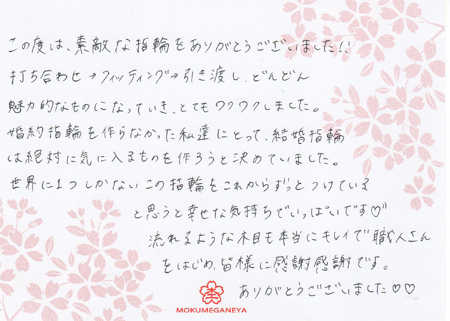 この度は、素敵な指輪をありがとうございました!!
打ち合わせ→フィッティング→引き渡し、どんどん
魅力的なものになっていき、とてもワクワクしました。
婚約指輪を作らなかった私達にとって、結婚指輪
は絶対に気に入るものを作ろうと決めていました。
世界に1つしかないこの指輪をこれからずっとつけている
と思うと幸せな気持ちでいっぱいです♡
流れるような木目も本当にキレイで職人さん
をはじめ、皆様に感謝感謝です。
ありがとうございました♡♡
MOKUMEGANEYA